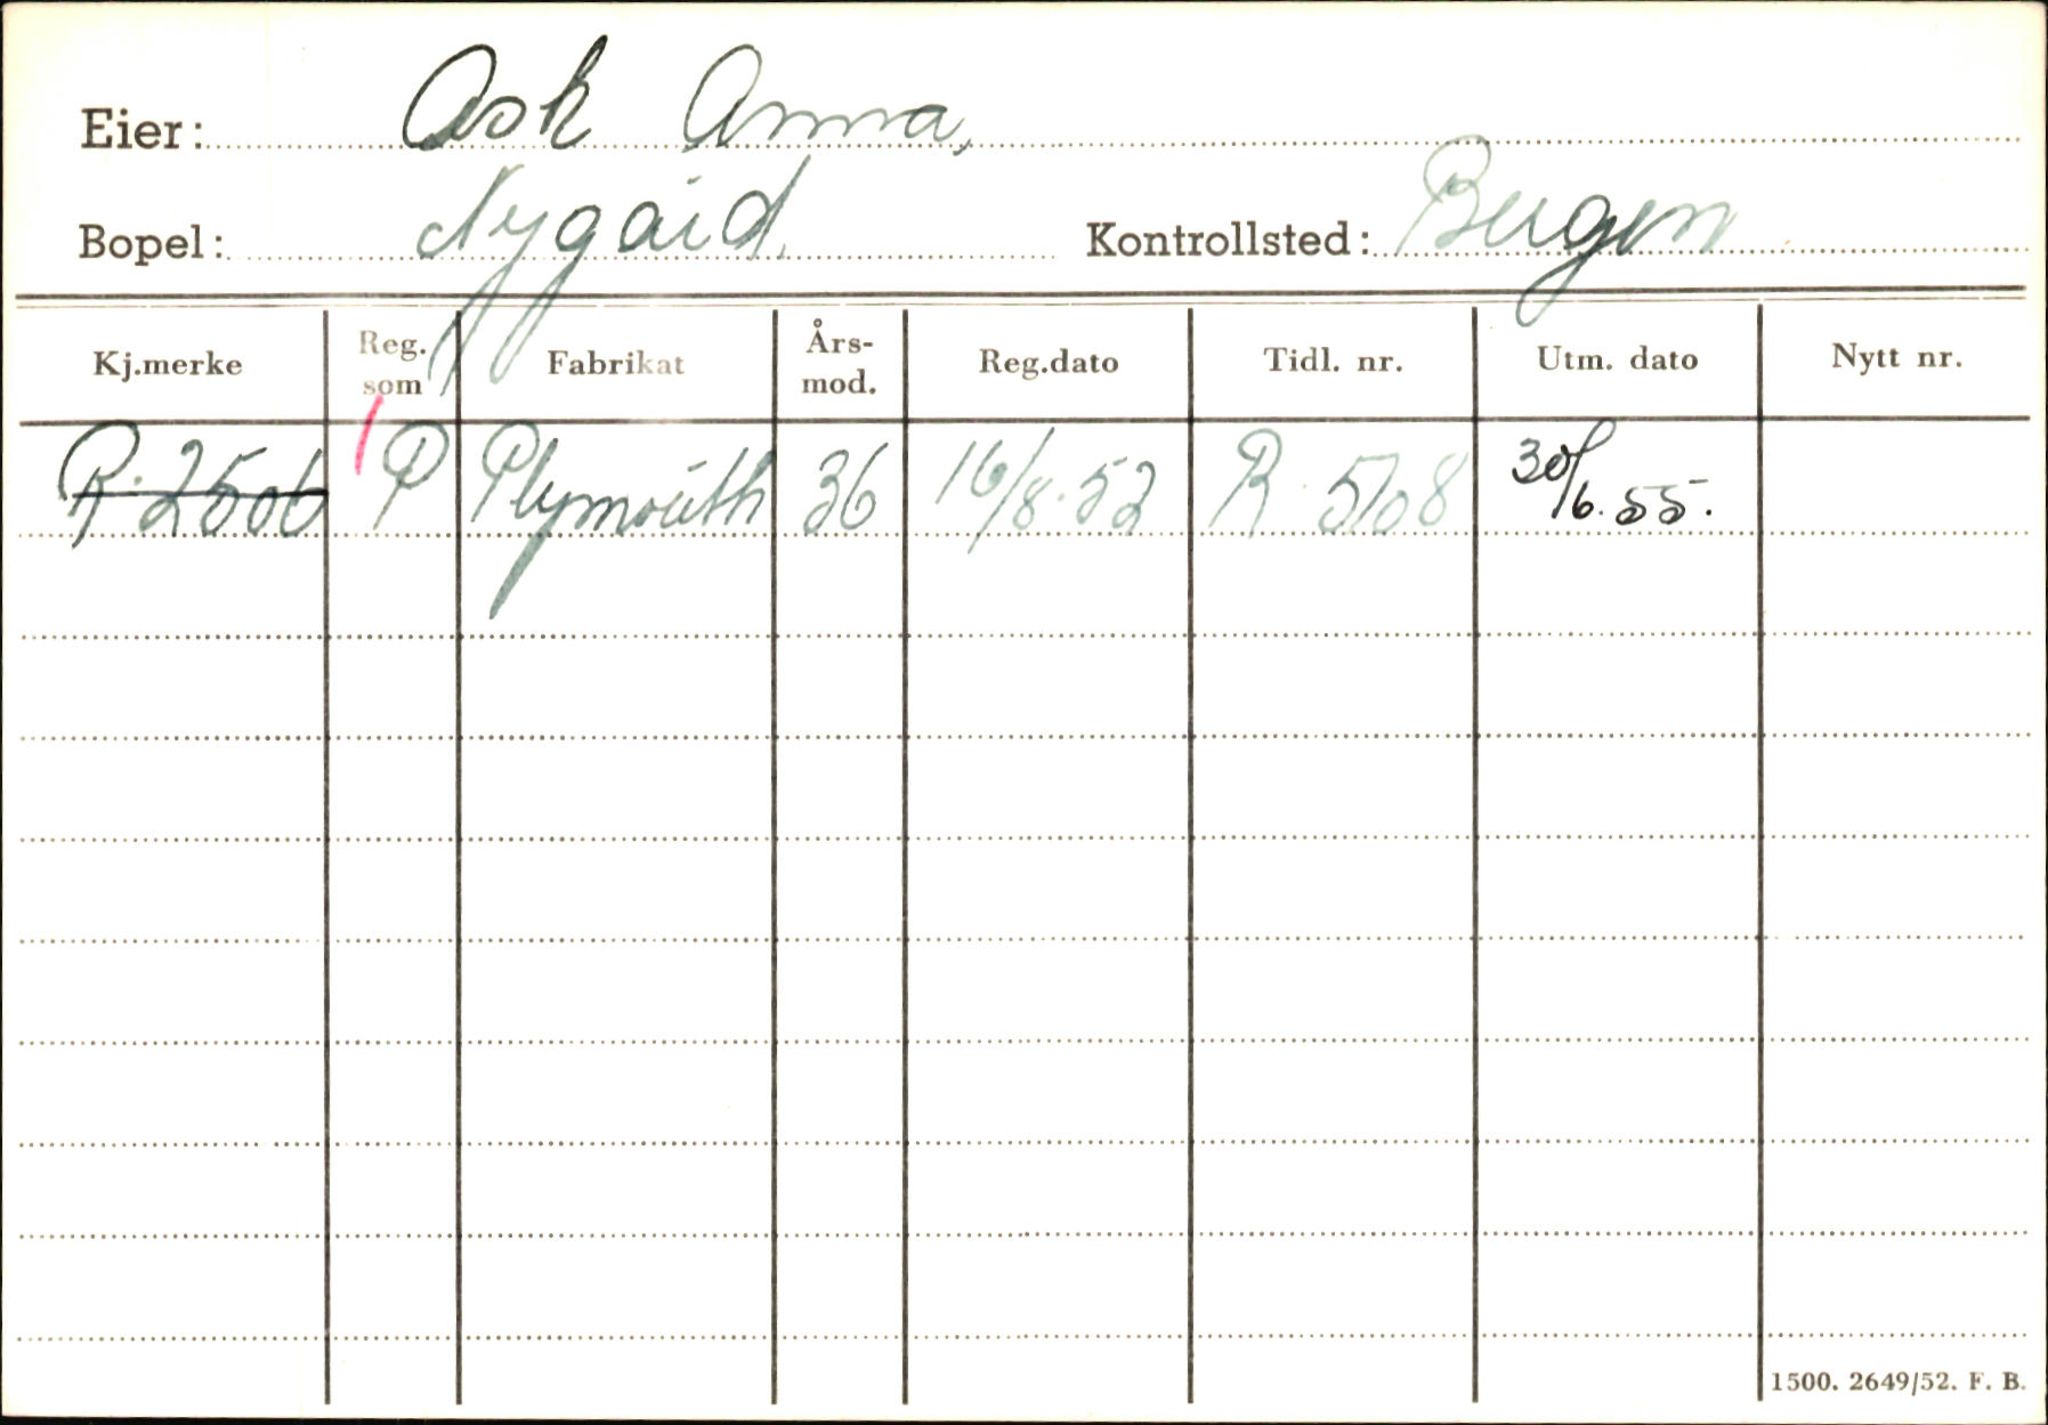 Eier: Ask Anna,
Bopel: Nygård. Kontrollsted: Bergen
Kj.merke Reg. som Fabrikat Års-mod. Reg.dato Tidl. nr. Utm. dato Nytt nr.
R.2506 P Plymouth 36 16/8.52 R 5708 30/6.55.
1500. 2649/52. F. B.